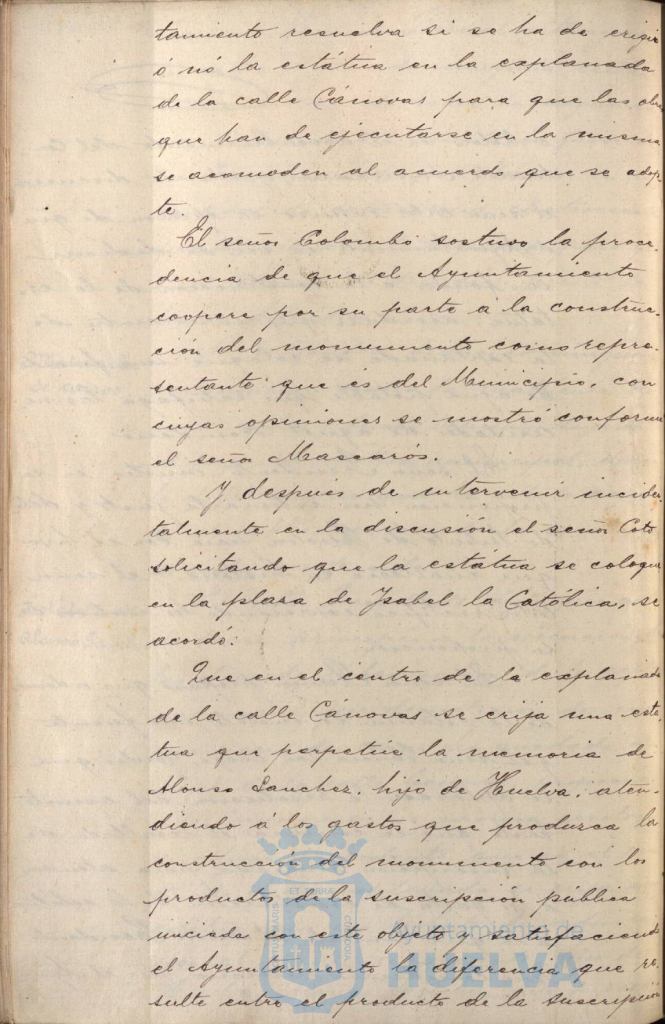 tamiento resuelva si se ha de erigir
ó nó la estátua en la explanada
de la calle Cánovas para que las obr
que han de ejecutarse en la misma
se acomoden al acuerdo que se adop-
te.
El señor Colombo sostuvo la proce-
dencia de que el Ayuntamiento
coopere por su parte á la construc-
ción del monumento como repre-
sentante que és del Municipio, con
cuyas opiniones se mostró conforme
el señor Mascarós.
Y después de intervenir inciden-
talmente en la discusión el señor Coto
solicitando que la estátua se coloque
en la plaza de Ysabel la Católica, se
acordó:
Que en el centro de la explanada
de la calle Cánovas se erija una está-
tua que perpetúe la memoria de
Alonso Sanchez, hijo de Huelva, aten-
diendo á los gastos que produzca la
construcción del monumento con los
productos de la suscripción pública
iniciada con este objeto y satisfaciendo
el Ayuntamiento la diferencia que re-
sulte entre el producto de la suscripción
Ayuntamiento de
HUELVA